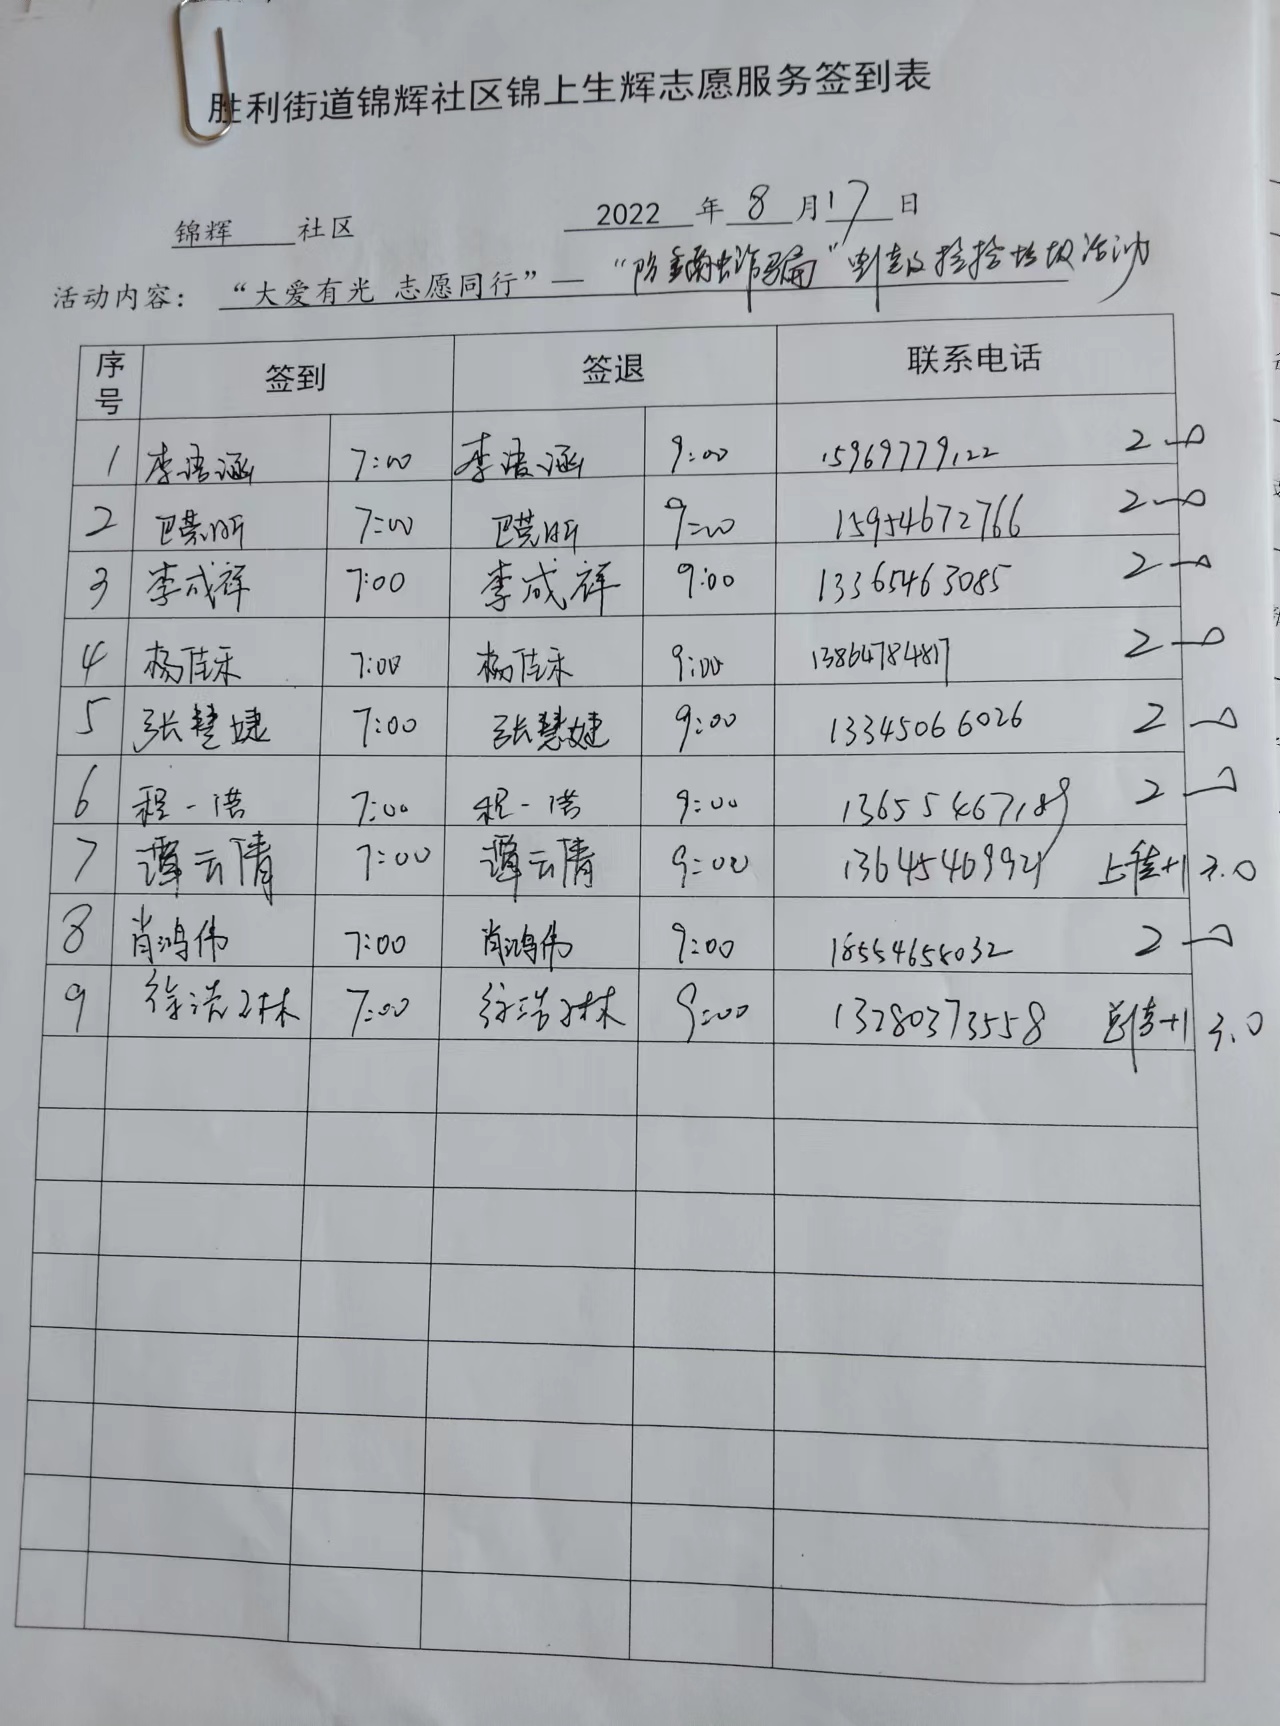 胜利街道锦辉社区锦上生辉志愿服务签到表
锦辉 社区 2022 年 8 月 17 日
活动内容：“大爱有光 志愿同行”— “防 诈骗” 及捡拾垃圾活动
序号 签到 签退 联系电话
1 李语涵 7:00 李语涵 9:00 15969779122 2
2 7:00 9:00 15954672766 2
3 李成祥 7:00 李成祥 9:00 13365463085 2
4 杨佳禾 7:00 杨佳禾 9:00 13864784817 2
5 张慧婕 7:00 张慧婕 9:00 13345066026 2
6 程一浩 7:00 程一浩 9:00 13655467189 2
7 谭云倩 7:00 谭云倩 9:00 13645469921 +1 3.0
8 肖鸿伟 7:00 肖鸿伟 9:00 18554658032 2
9 徐浩林 7:00 徐浩林 9:00 13280373558 +1 3.0